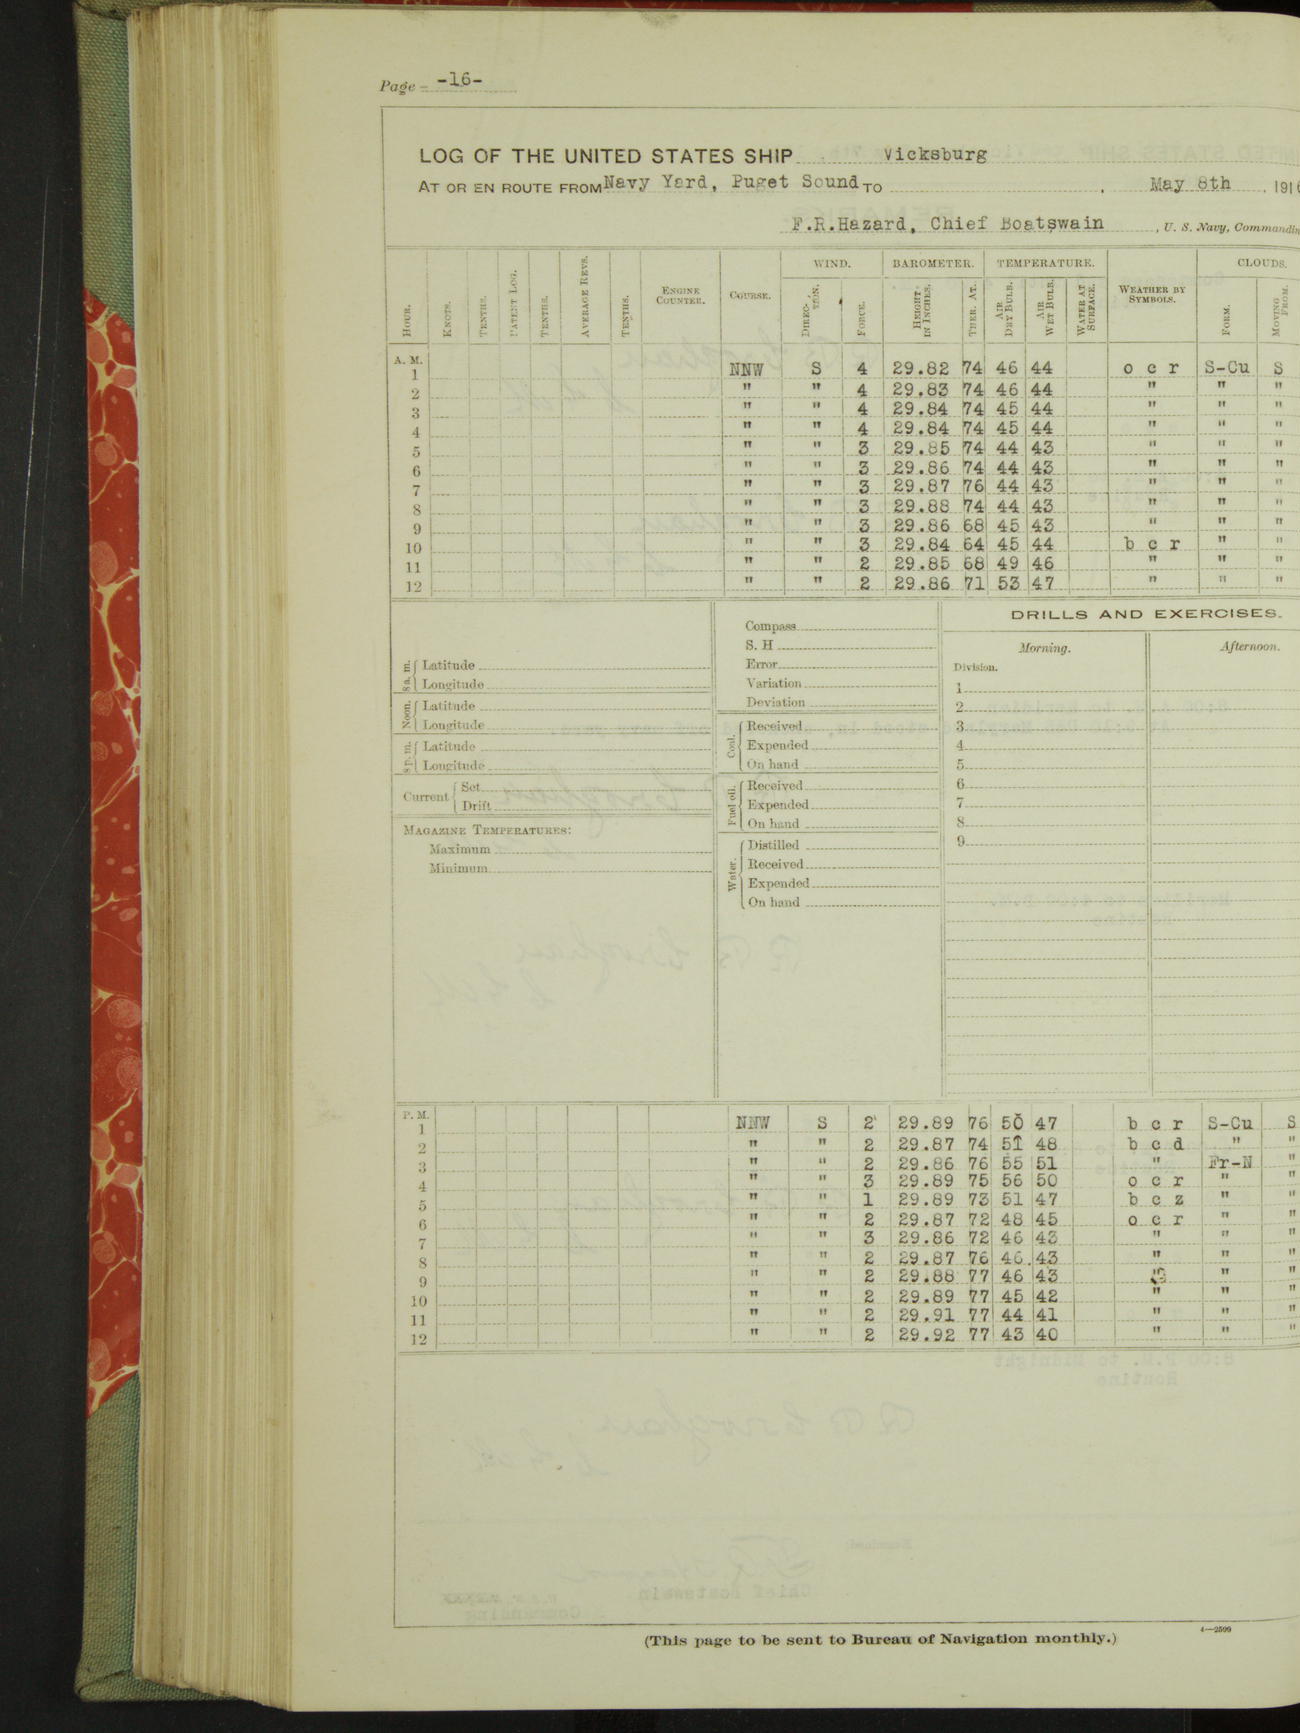 Page -16-
LOG OF THE UNITED STATES SHIP Vicksburg
AT OR EN ROUTE FROM Navy Yard, Puget Sound TO , May 8th , 191
F.R.Hazard, Chief Boatswain , U. S. Navy, Commandin
HOUR. KNOTS. TENTHS. PATENT LOG. TENTHS. AVERAGE REVS. TENTHS. ENGINE COUNTER. COURSE. WIND. DIREC-TION. FORCE. BAROMETER. HEIGHT IN INCHES. THER. AT. TEMPERATURE. AIR DRY BULB. AIR WET BULB. WATER AT SURFACE. WEATHER BY SYMBOLS. CLOUDS. FORM. MOVING FROM.
A. M.
1 NNW S 4 29.82 74 46 44 o c r S-Cu S
2 " " 4 29.83 74 46 44 " " "
3 " " 4 29.84 74 45 44 " " "
4 " " 4 29.84 74 45 44 " " "
5 " " 3 29.85 74 44 43 " " "
6 " " 3 29.86 74 44 43 " " "
7 " " 3 29.87 76 44 43 " " "
8 " " 3 29.88 74 44 43 " " "
9 " " 3 29.86 68 45 43 " " "
10 " " 3 29.84 64 45 44 b c r " "
11 " " 2 29.85 68 49 46 " " "
12 " " 2 29.86 71 53 47 " " "
8 a. m. Latitude
Longitude
Noon. Latitude
Longitude
8 p. m. Latitude
Longitude
Current Set
Drift
MAGAZINE TEMPERATURES:
Maximum
Minimum
Compass
S. H
Error
Variation
Deviation
Coal. Received
Expended
On hand
Fuel oil. Received
Expended
On hand
Water. Distilled
Received
Expended
On hand
DRILLS AND EXERCISES.
Morning. Afternoon.
Division.
1
2
3
4
5
6
7
8
9
P. M.
1 NNW S 2 29.89 76 50 47 b c r S-Cu S
2 " " 2 29.87 74 51 48 b c d " "
3 " " 2 29.86 76 55 51 " Fr-N "
4 " " 3 29.89 75 56 50 o c r " "
5 " " 1 29.89 73 51 47 b c z " "
6 " " 2 29.87 72 48 45 o c r " "
7 " " 3 29.86 72 46 43 " " "
8 " " 2 29.87 76 46 43 " " "
9 " " 2 29.88 77 46 43 " " "
10 " " 2 29.89 77 45 42 " " "
11 " " 2 29.91 77 44 41 " " "
12 " " 2 29.92 77 43 40 " " "
4—2599
(This page to be sent to Bureau of Navigation monthly.)